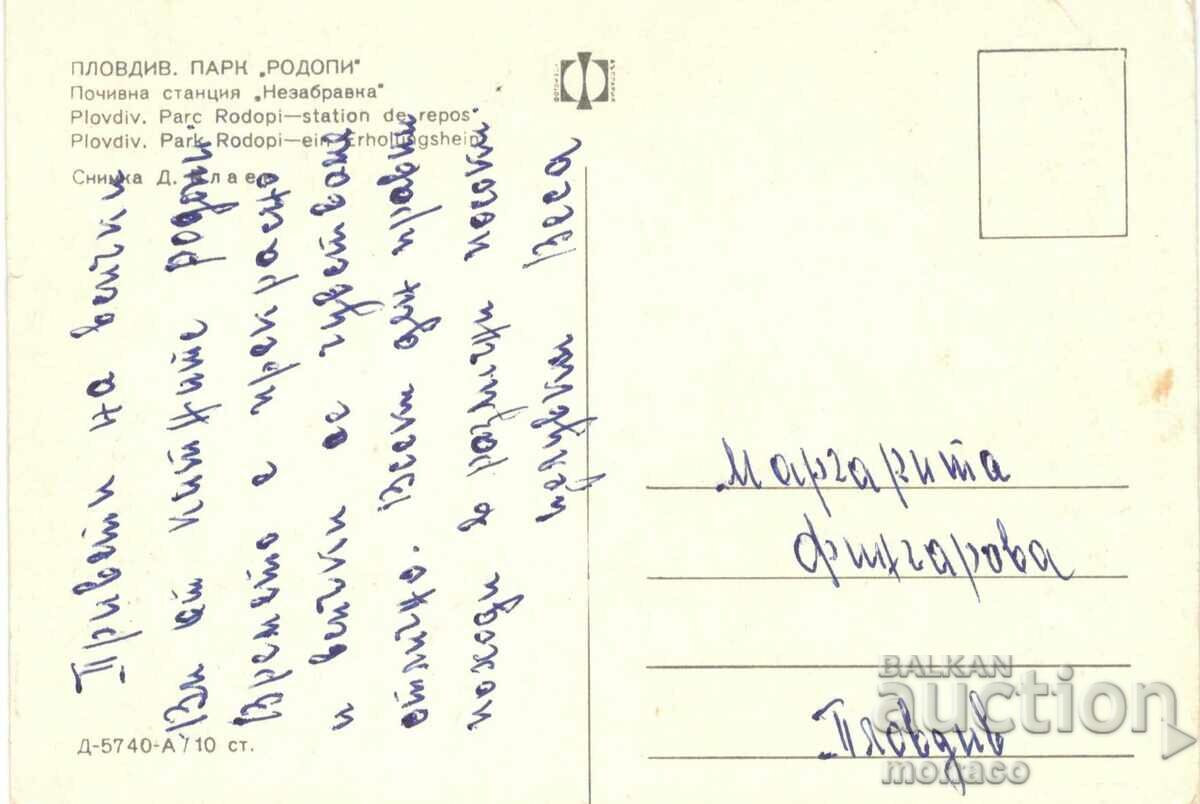 ПЛОВДИВ. ПАРК „РОДОПИ"
Почивна станция „Незабравка"
Plovdiv. Parc Rodopi—station de repos
Plovdiv. Park Rodopi—ein Erholungsheim
Снимка Д.
Привети на всички
Ви от китните родопи
Времето е прекрасно
и всички се чувстваме
отлично. Всеки ден правим
походи в различни посоки
целувки Веса
Д-5740-А / 10 ст.
Маргарита
Фингарова
Пловдив
BALKAN
auction
monaco